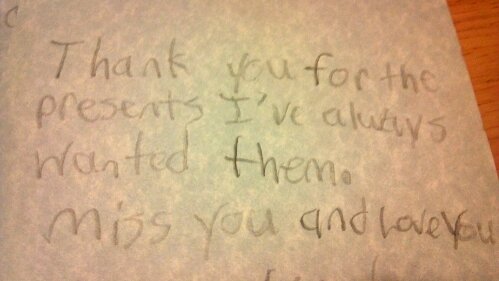 Thank you for the
presents I've always
wanted them.
Miss you and Love You